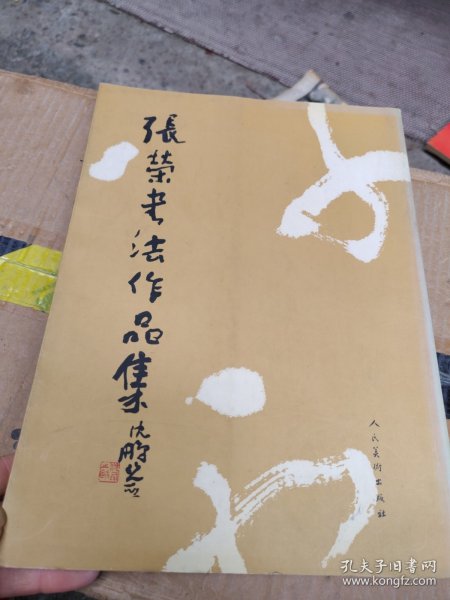 張荣书法作品集
沈鹏
人民美術出版社
孔夫子旧书网
www.kongfz.com